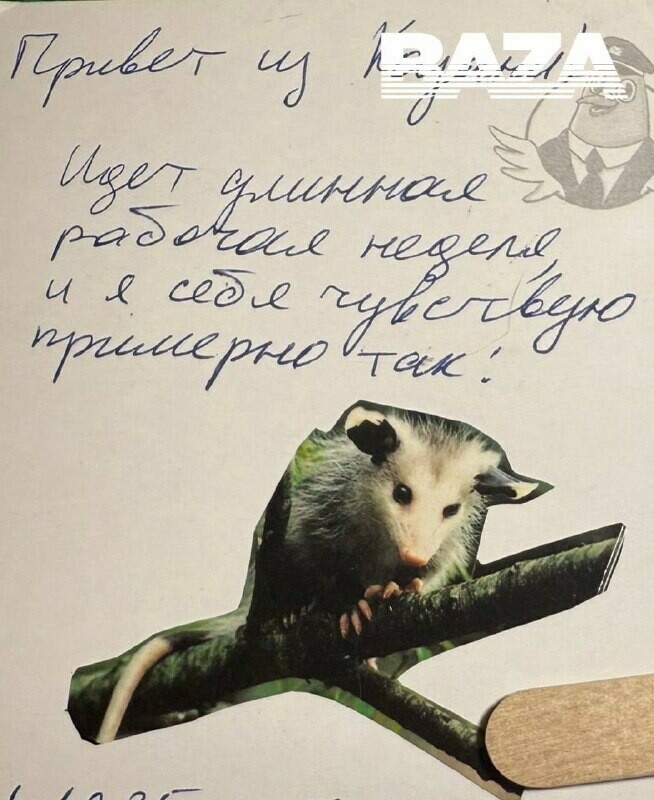 Привет из Казани!
BAZA
Идет длинная
рабочая неделя,
и я себя чувствую
примерно так: